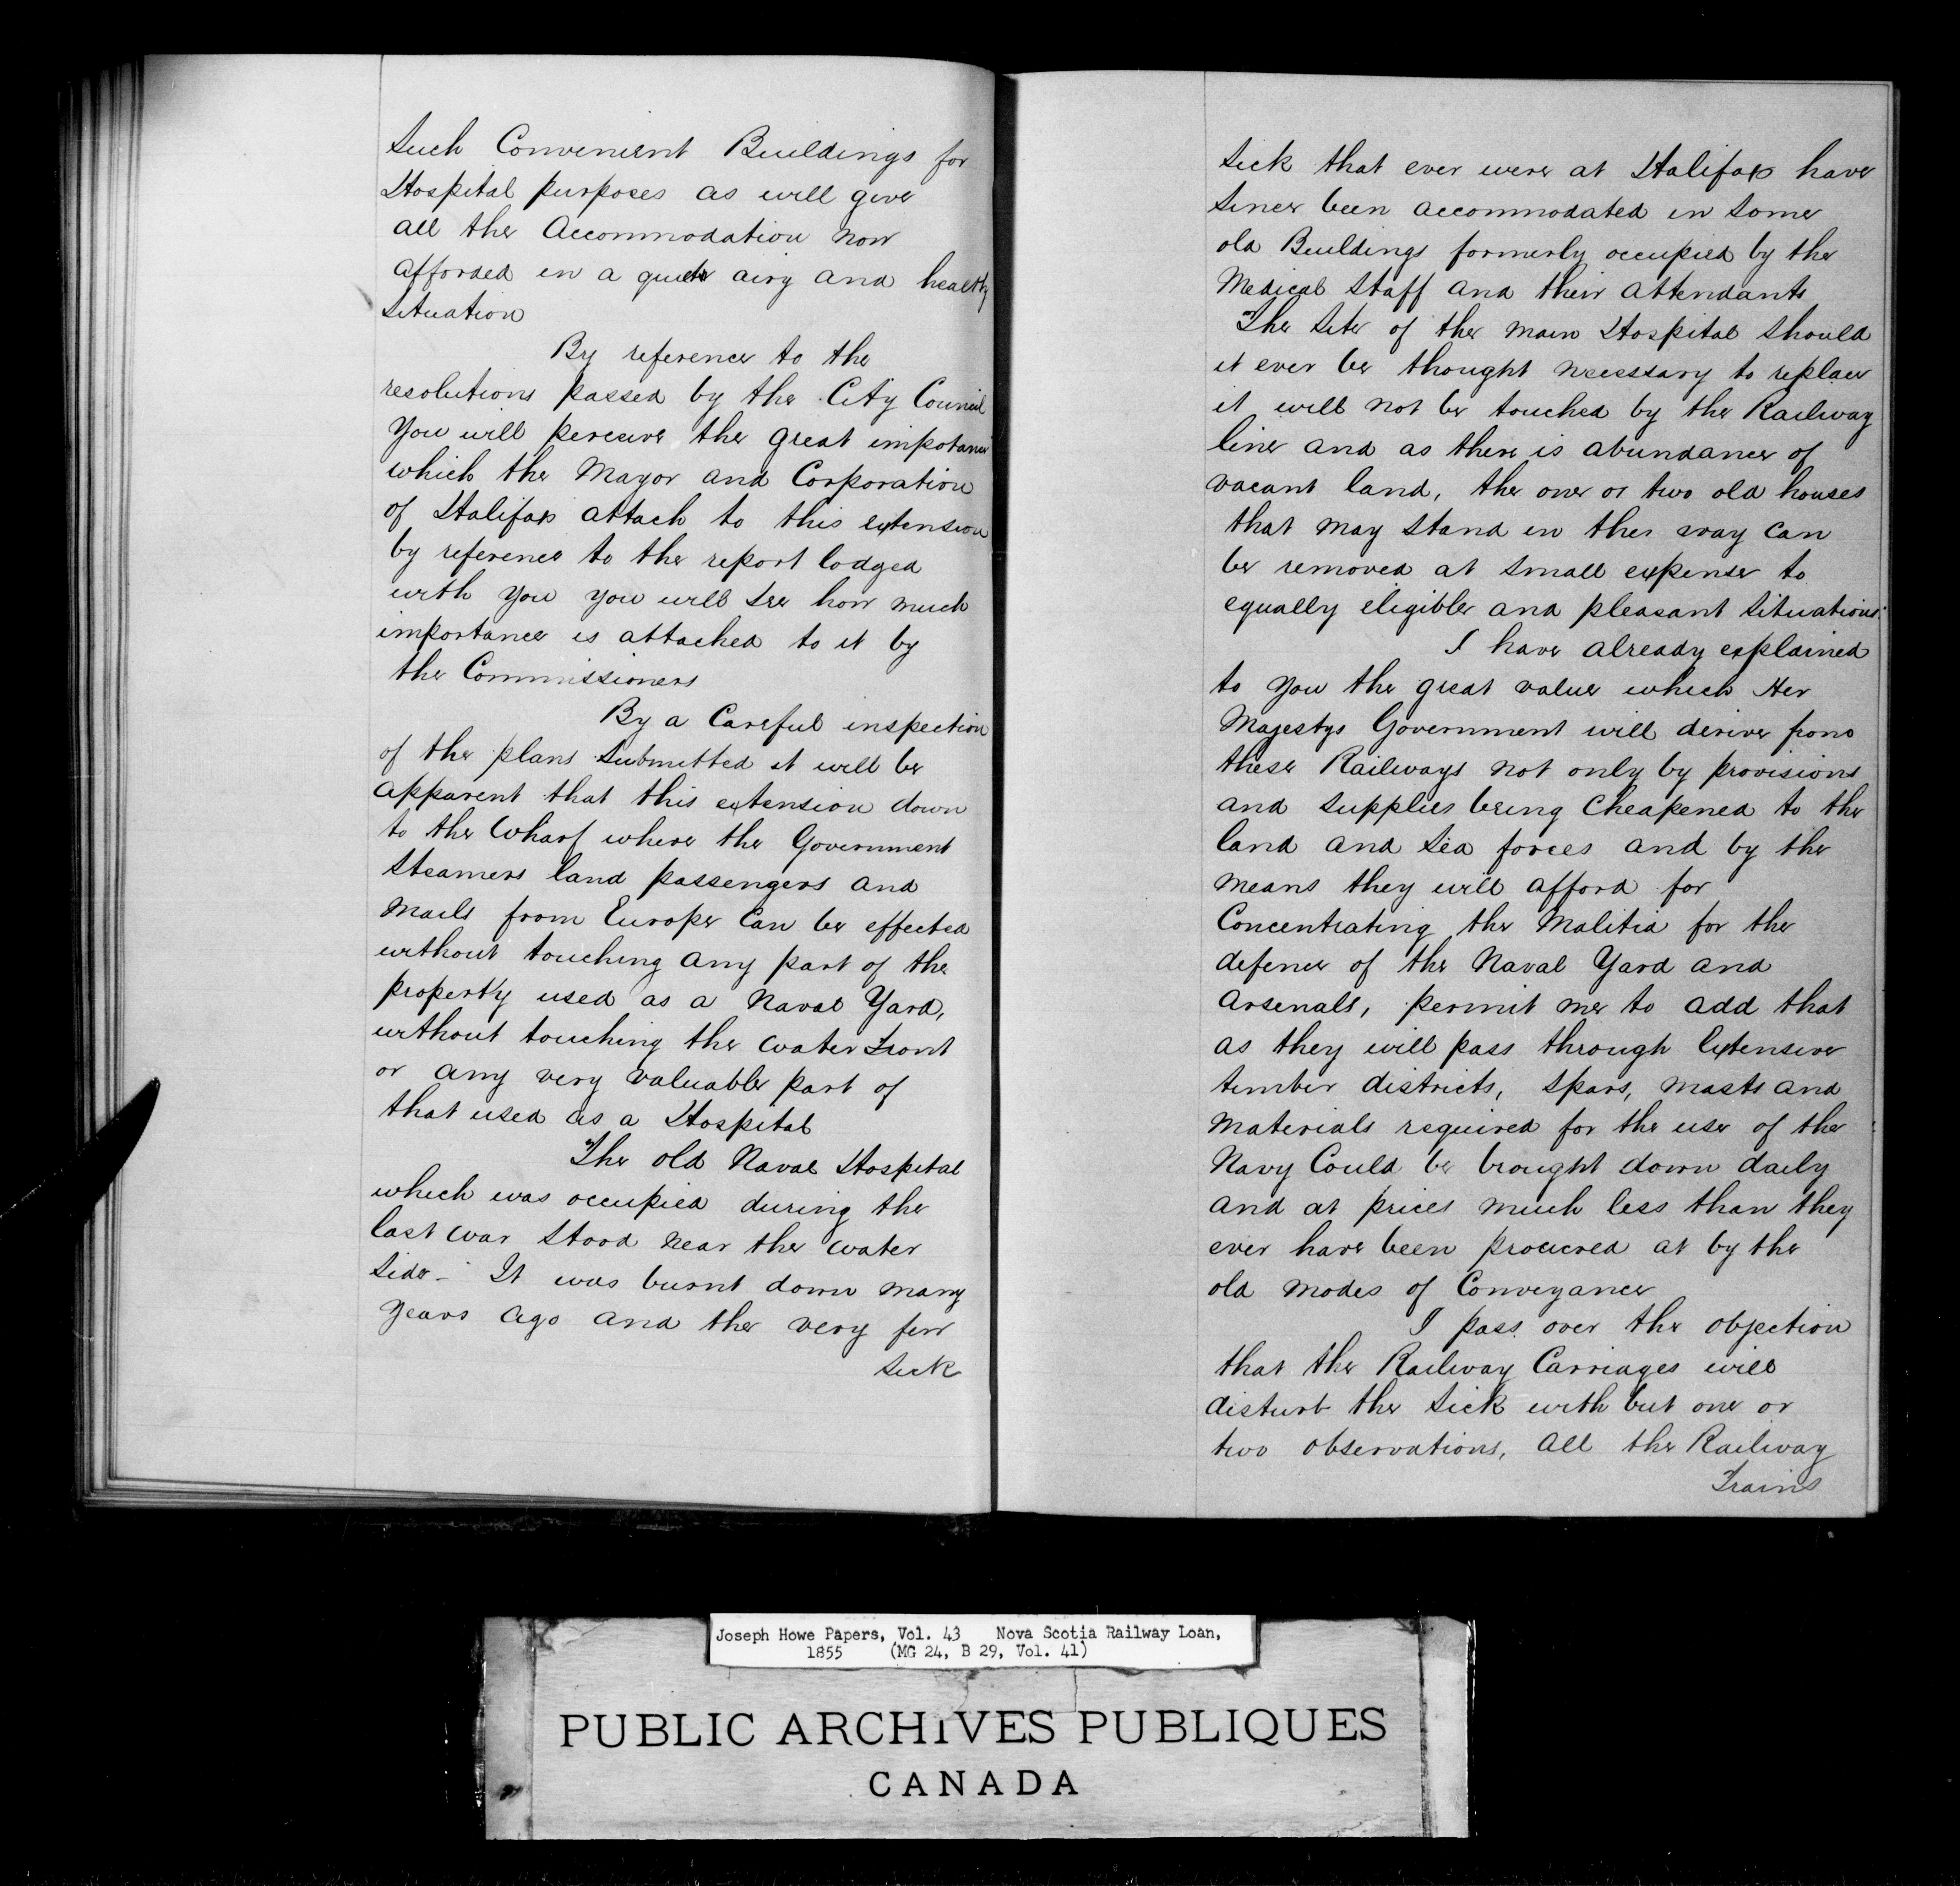 Such Convenient Buildings for
Hospital purposes as will give
all the Accommodation now
afforded in a quiet airy and healthy
situation
By reference to the
resolutions passed by the City Council
You will perceive the great impotance
which the Mayor and Corporation
of Halifax attach to this extension
by reference to the report lodged
with you you will see how much
importance is attached to it by
the Commissioners
By a Careful inspection
of the plans submitted it will be
apparent that this extension down
to the Wharf where the Government
Steamers land passengers and
Mails from Europe Can be effected
without touching any part of the
property used as a Naval Yard,
without touching the water front
or any very valuable part of
that used as a Hospital
The old Naval Hospital
which was occupied during the
last war stood near the water
side - It was burnt down many
years ago and the very few
sick
sick that ever were at Halifax have
since been accommodated in some
old Buildings formerly occupied by the
Medical Staff and their attendants
The Site of the main Hospital should
it ever be thought necessary to replace
it will not be touched by the Railway
line and as there is abundance of
vacant land, the one or two old houses
that may stand in the way can
be removed at small expense to
equally eligible and pleasant situations.
I have already explained
to you the great value which Her
Majestys Government will derive from
these Railways not only by provisions
and supplies being Cheapened to the
land and sea forces and by the
means they will afford for
Concentrating the Malitia for the
defence of the Naval Yard and
Arsenals, permit me to add that
as they will pass through Extensive
timber districts, spars, masts and
Materials required for the use of the
Navy Could be brought down daily
and at prices much less than they
ever have been procured at by the
old modes of Conveyance
I pass over the objection
that the Railway Carriages will
disturb the sick with but one or
two observations, All the Railway
Trains
Joseph Howe Papers, Vol. 43 Nova Scotia Railway Loan,
1855 (MG 24, B 29, Vol. 41)
PUBLIC ARCHIVES PUBLIQUES
CANADA